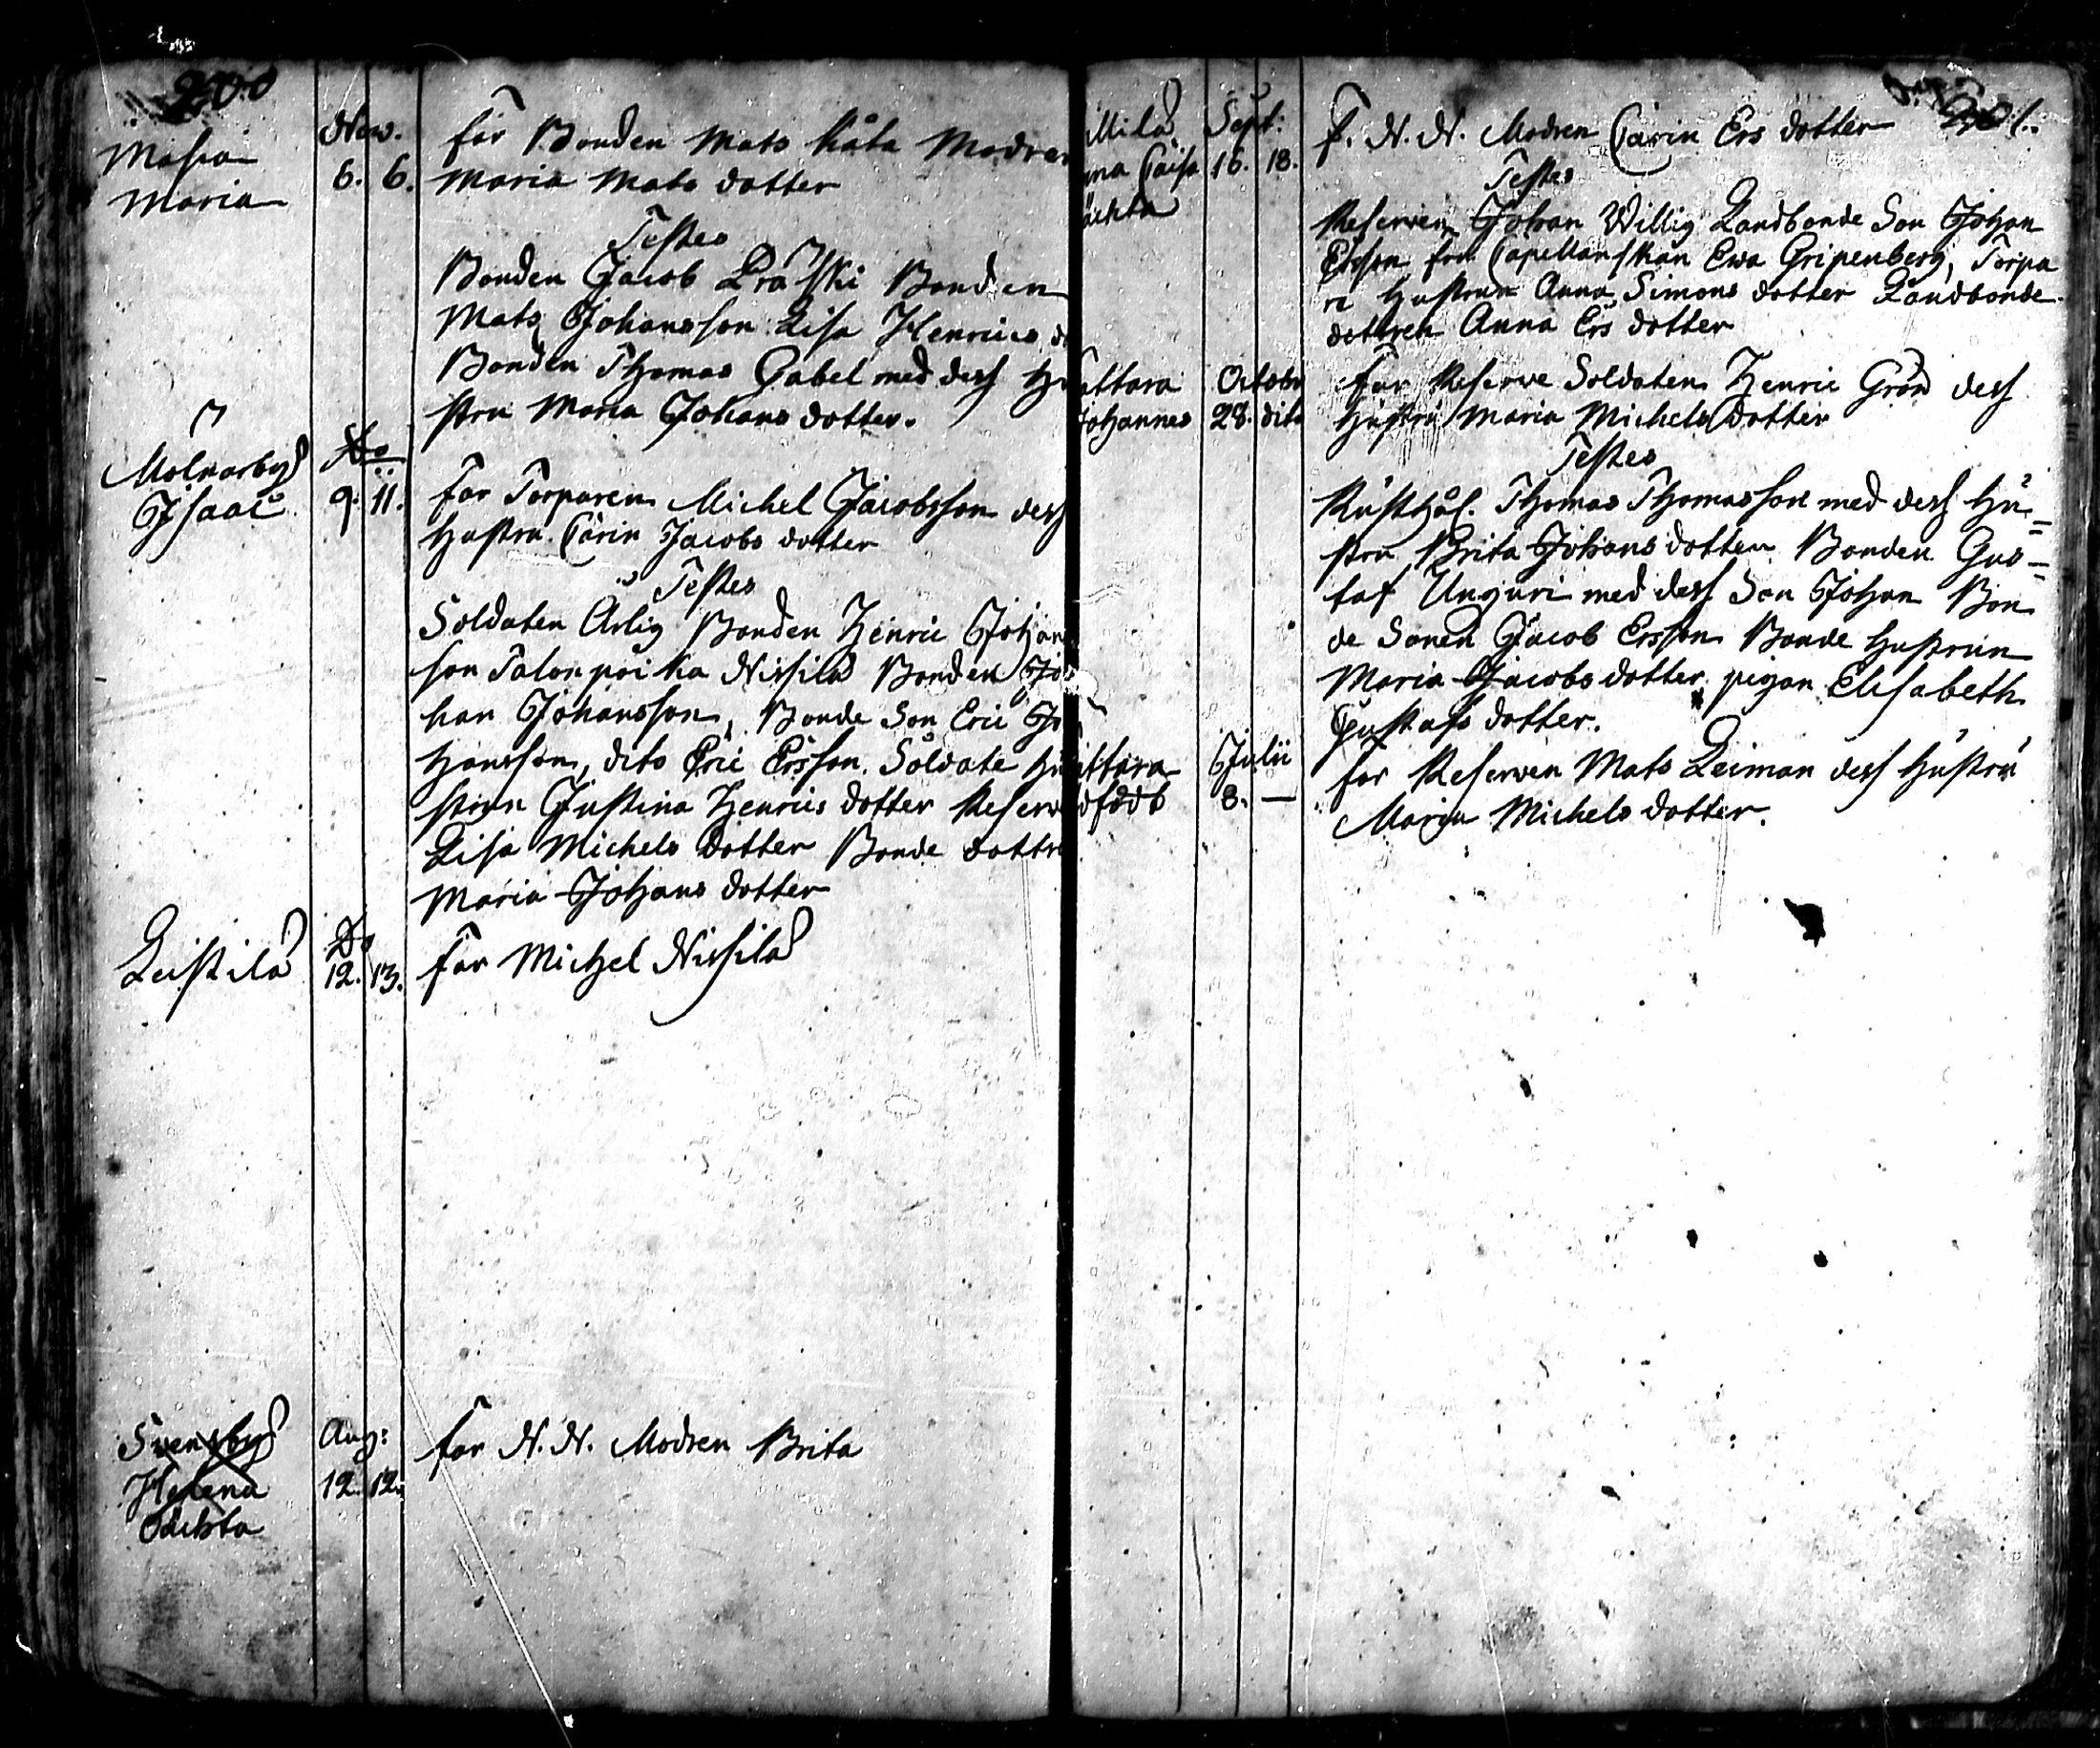 200
Masia
Maria
Now.
6. 6.
far Bonden Mats Kåta Modren
Maria Mats dotter
Testes
Bonden Jacob Präski Bonden
Mats Johansson Lisa Henrics d
Bonden Thomas Gabel med dess Hu
stru Maria Johans dotter.
Molnarby
Isaac
Do
9. 11.
far Torparen Michel Jacobsson dess
Hustru Carin Jacobs dotter
Testes
Soldaten Arlig Bonden Henric Johan
son Talonpoika Nissilä Bonden Jo
han Johansson, Bonde Son Eric Jo
hansson, dito Eric Ersson. Soldate Hu
strun Justina Henrics dotter Reserv
Lisa Michels dotter Bonde dottr
Maria Johans dotter
Leistilä
Do
12. 13.
far Michel Nissilä
Svensby
Helena
Oächta
Aug:
12. 12.
far N. N. Modren Brita
201.
Milä
na Caisa
ächta
Sept:
16. 18.
f. N. N. Modren Carin Ers dotter
Testes
Reserven Johan Willig Landbonde Son Johan
Ersson fru Capellanskan Ewa Gripenberg, Torpa
re Hustrun Anna Simons dotter Landbonde
dottren Anna Ers dotter
attara
Johannes
Octobr
28. dito
far Reserve Soldaten Henric Grön dess
Hustru Maria Michels dotter
Testes
Rusthål. Thomas Thomasson med dess Hu=
stru Brita Johans dotter Bonden Gus=
taf Unguri med dess Son Johan Bon
de Sonen Jacob Ersson Bonde Hustrun
Maria Jacobs dotter pigan Elisabeth
Gustafs dotter.
attara
dfödt
Julii
8. —
far Reserven Mats Leiman dess Hustru
Maria Michels dotter.